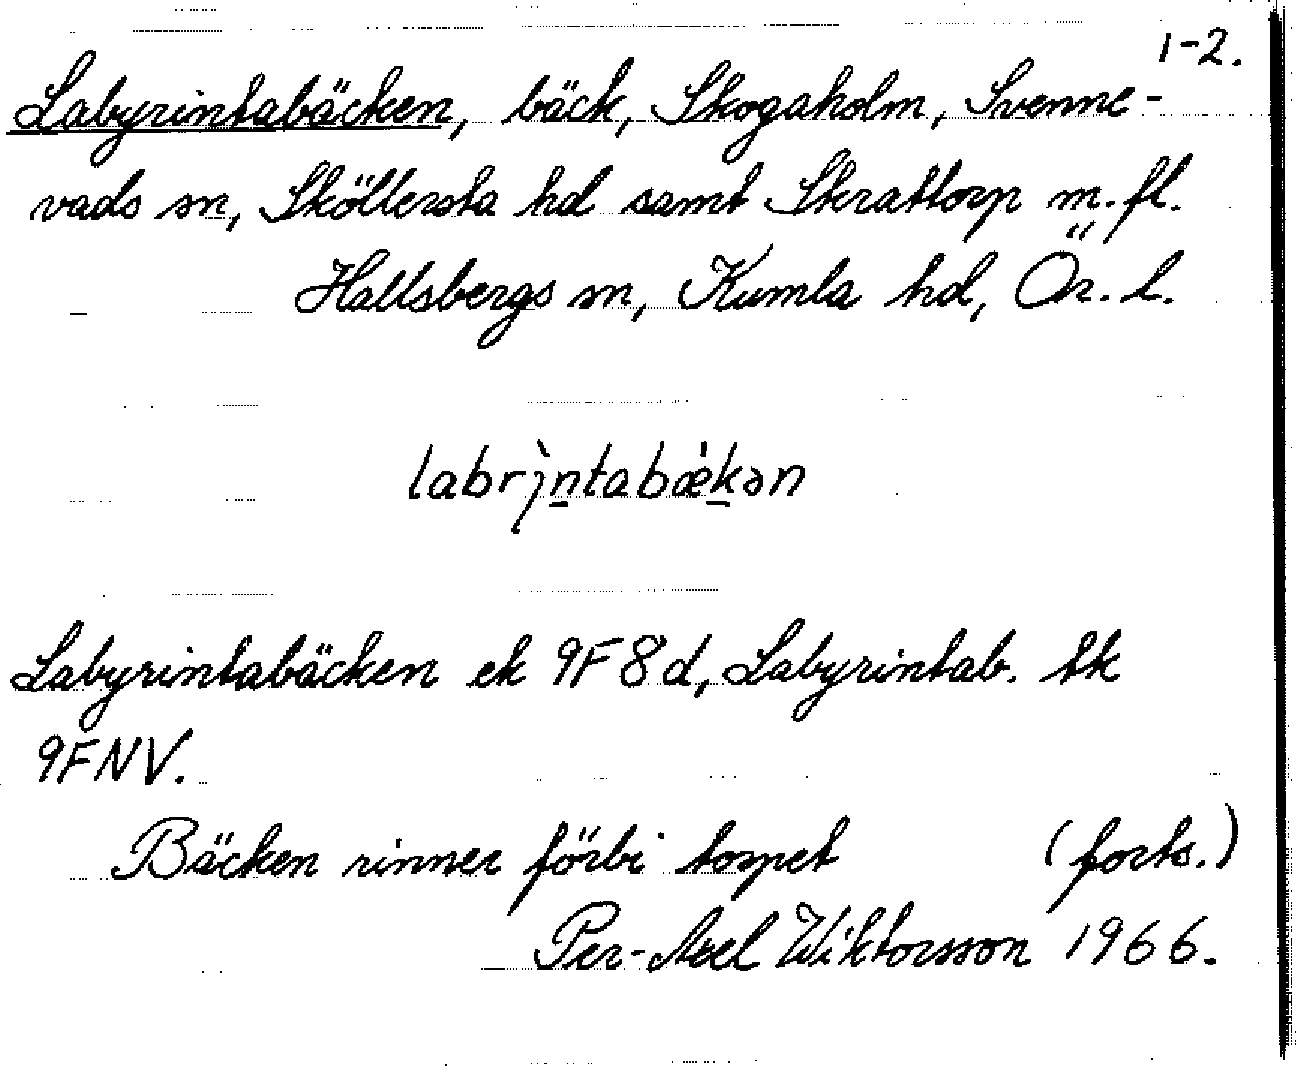 1-2.
Labyrintabäcken, bäck, Skogaholm, Svenne-
vads sn, Sköllersta hd samt Skrattorp m. fl.
Hallsbergs sn, Kumla hd, Ör. l.
labrìntabǽkən
Labyrintabäcken ek 9F8d, Labyrintab. tk
9FNV.
Bäcken rinner förbi torpet (forts.)
Per-Axel Wiktorsson 1966.